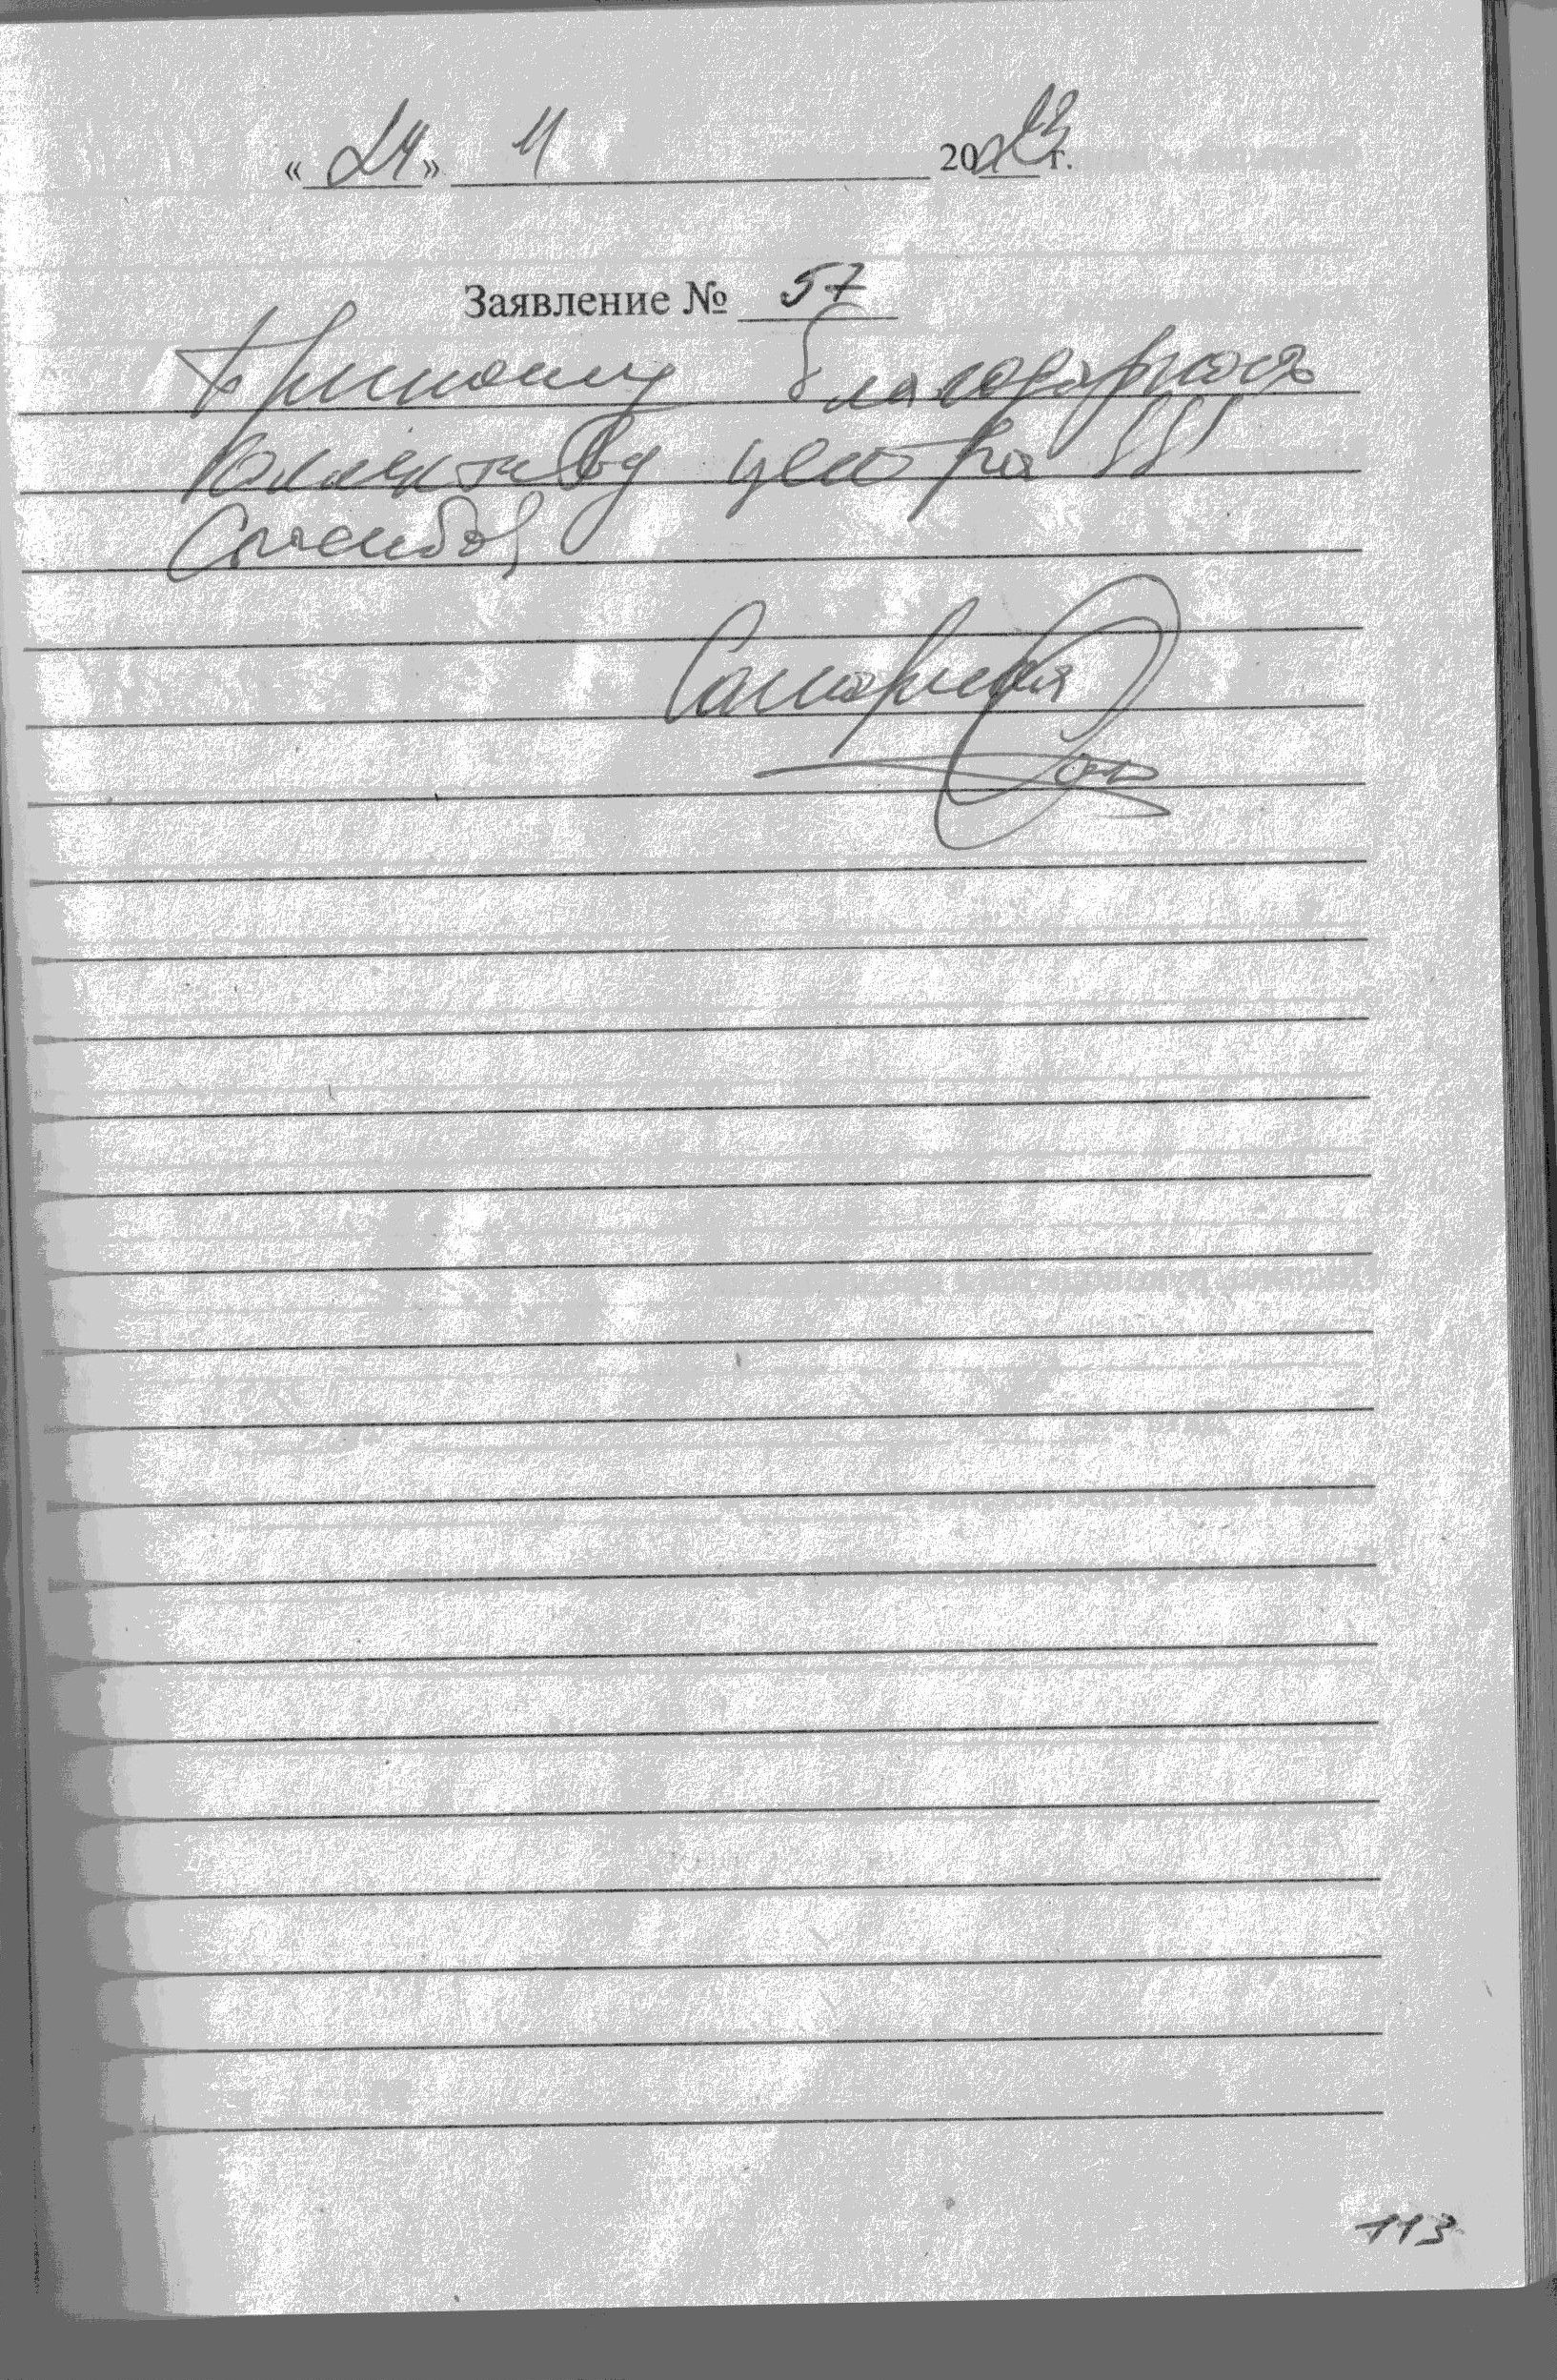 «24» 11 2023 г.
Заявление № 57
Приношу благодарность
коллективу центра !!!
Спасибо!
113